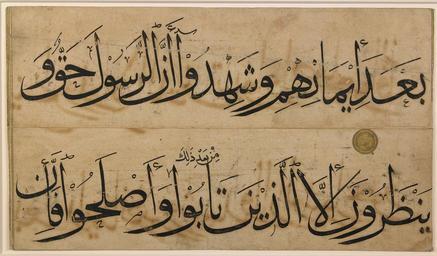 بعد ايمانهم وشهدوا ان الرسول حق و
من بعد ذلك
ينظرون الا الذين تابوا واصلحوا فان